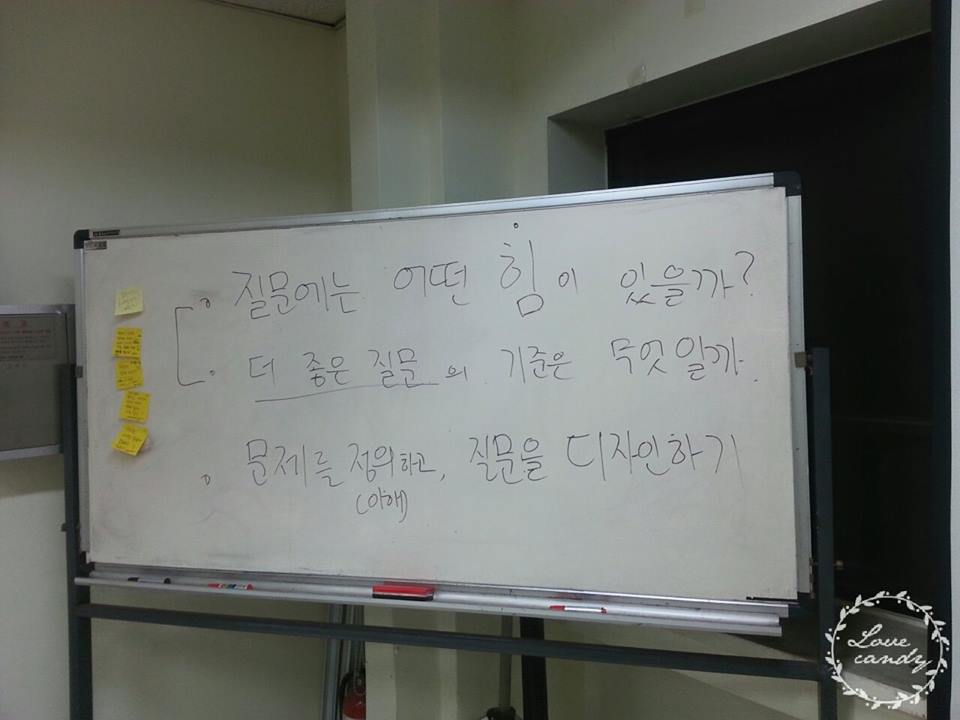 질문에는 어떤 힘이 있을까?
더 좋은 질문의 기준은 무엇일까.
문제를 정의하고, 질문을 디자인하기
(이해)
Love
candy